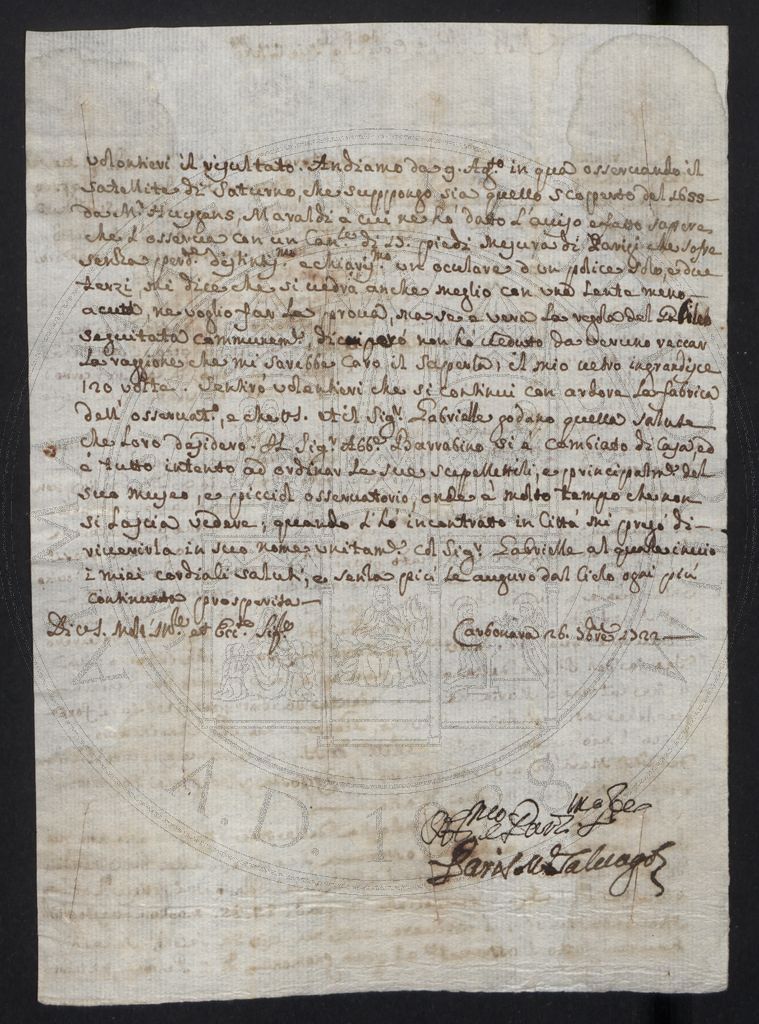 volontieri il risultato. Andiamo da 9. Ag.to in qua osservando il
Satellite di Saturno, che suppongo sia quello scoperto del 1655
da M.r Huygens, Maraldi à cui ne hò dato l'aviso e fatto sapere
che l'osservo con un Can.le di 15. piedi mesura di Parigi che sofre
senza perd. distint.ma e chiariss.ma un oculare d'un police solo, e due
terzi, mi dice che si vedrà anche meglio con una lente meno
acuta, ne voglio far la prova, ma se è vera la regola del
seguitata communem.te, però non hò veduto da veruno
la raggione che mi sarebbe caro il saperla; il mio vetro ingrandisce
120 volte. Sentirò volontieri che si continui con ardore la fabrica
dell'osservat.o, e che VS. et il Sig.r Gabrielle godano quella salute
che loro desidero. Il Sig.r Abb.e Barrabino si è cambiato di casa, ed
è tutto intento ad ordinar le sue supellettili, e principalm.te del
suo museo, e picciol osservatorio, onde è molto tempo che non
si lascia vedere; quando l'hò incontrato in Città mi pregò di
riverirla in suo nome unitam.te col Sig.r Gabrielle al quale invio
i miei cordiali saluti, e senza più le auguro dal Cielo ogni più
continuata prosperità
Di VS. Molt'Ill.re et Ecc.ma Sig.re
Carbonara 26. 9bre 1722
Paris M.a Salvago
A.D. 1088